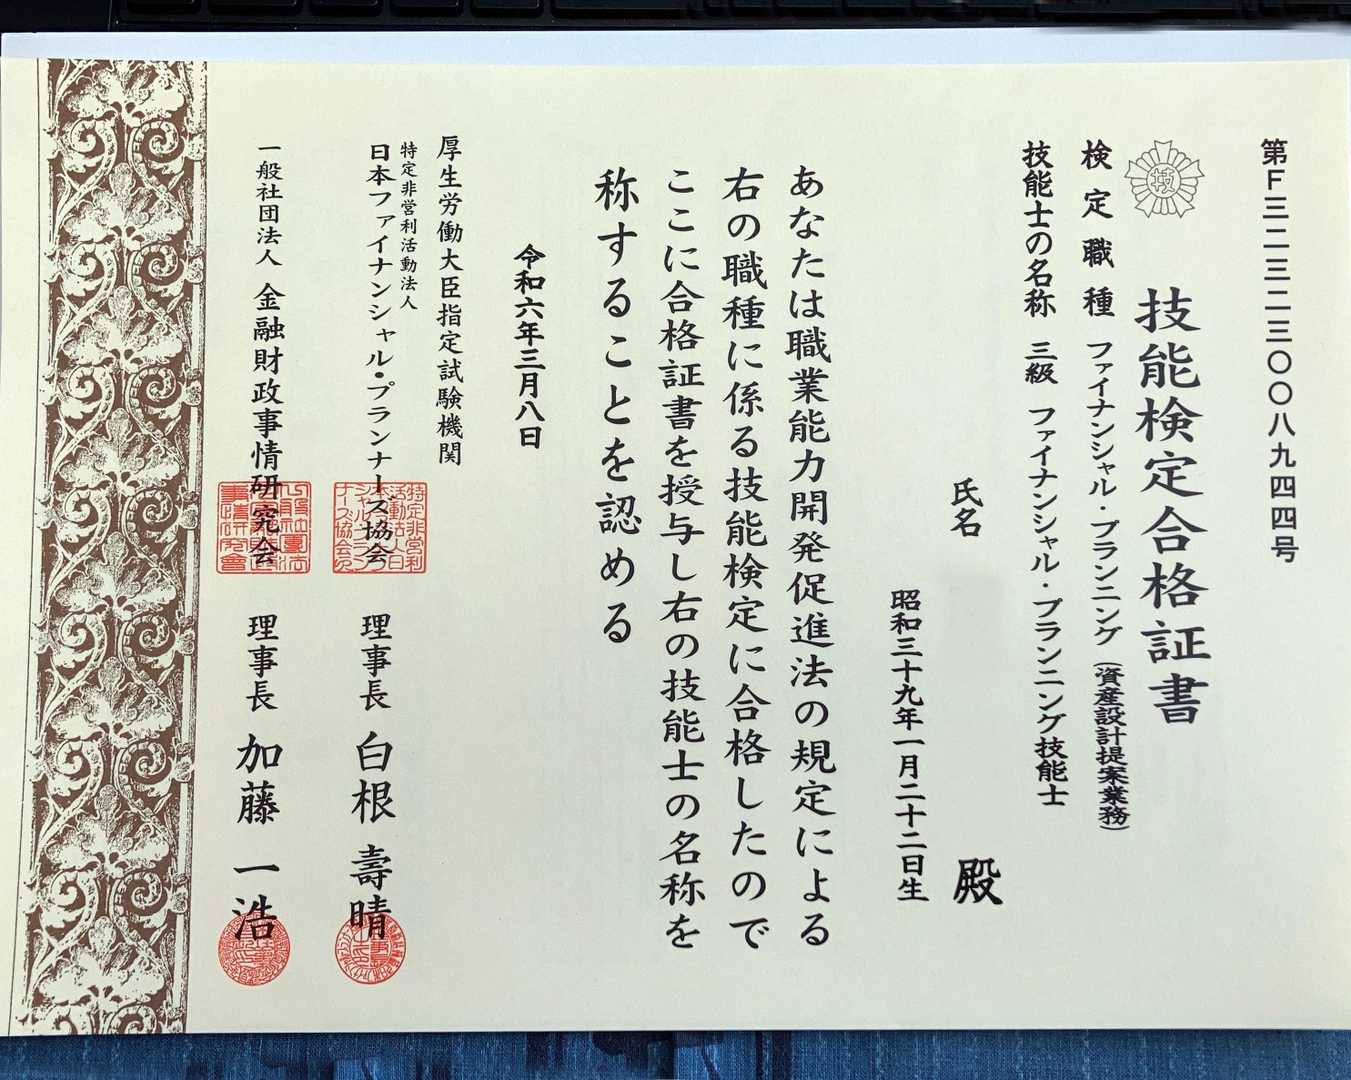 第F三二三二三〇〇八九四四号
技
技能検定合格証書
検定職種 ファイナンシャル・プランニング（資産設計提案業務）
技能士の名称 三級 ファイナンシャル・プランニング技能士
氏名 殿
昭和三十九年一月二十二日生
あなたは職業能力開発促進法の規定による
右の職種に係る技能検定に合格したので
ここに合格証書を授与し右の技能士の名称を
称することを認める
令和六年三月八日
厚生労働大臣指定試験機関
特定非営利活動法人
日本ファイナンシャル・プランナーズ協会 理事長 白根 壽晴
一般社団法人 金融財政事情研究会 理事長 加藤 一浩